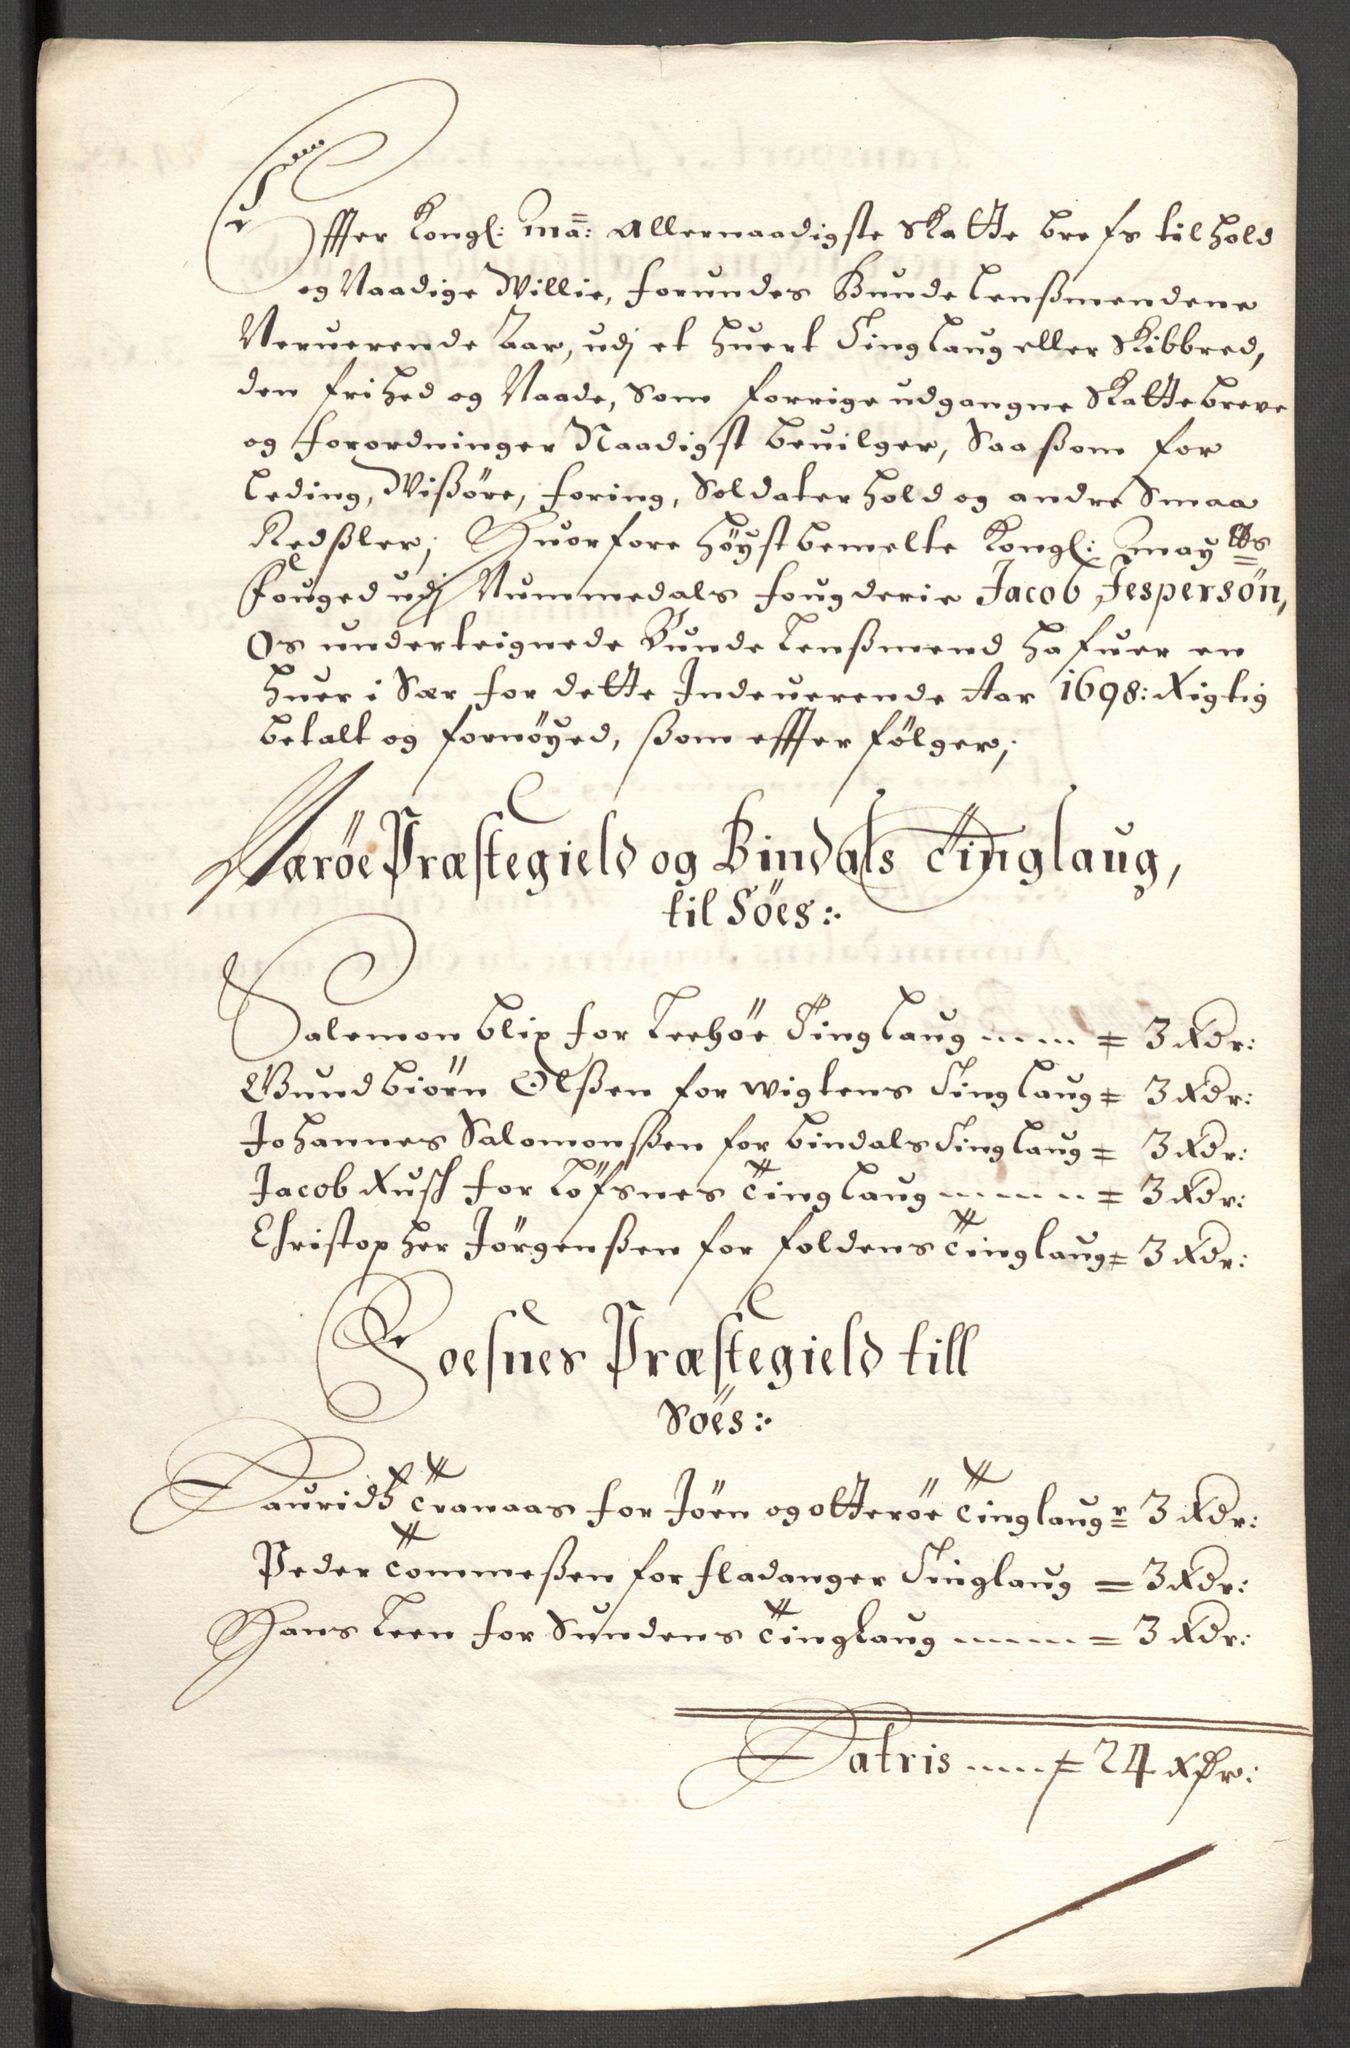 Effter Kongl: Ma: Allernaadigste Skatte brefs tilhold
og Naadige Willie, forundes Bunde Lensmendene
Neruerende Aar, udj et huert Tinglaug eller Skibbred,
den frihed og Naade, Som forrige udgangne Skattebreve
og forordninger Naadigst beuilger, Saa ßom for
Leding, Wißøre, foring, Soldaterhold og andre Smaa
Redßler; Huorfore høystbemelte Kongl: May tts
fouged udj Nummedals fougderie Jacob Jespersøn,
Os underteignede Bunde Lenßmend hafuer en
huer i Sær for dette Indeuerende Aar 1698: Rigtig
betalt og fornøyed, ßom effter følger;
Nærøe Præstegield og Bindals Tinglaug,
til Söes:
Salemon blix for Leehöe Tinglaug ..... = 3 Rdr:
Gundbiørn Olßen for Wigtens Tinglaug = 3 Rdr:
Johannes Salomonßen for bindals Tinglaug = 3 Rdr:
Jacob Rusk for Löfsnes Tinglaug ..... = 3 Rdr:
Christopher Jörgenßen for foldens Tinglaug = 3 Rdr:
Foesnes Præstegield till
Söes:
Lauridtz Tranaas for Jöen og Otteröe Tinglaugr = 3 Rdr:
Peder Tommeßen for fladanger Tinglaug = 3 Rdr:
Hans Leen for Sundens Tinglaug ..... = 3 Rdr:
Latris ..... = 24 Rdr: